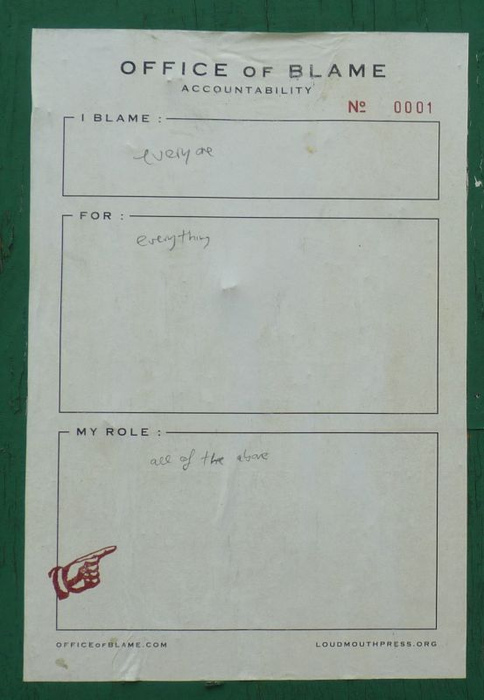 OFFICE OF BLAME
ACCOUNTABILITY
Nº 0001
I BLAME :
everyone
FOR :
everything
MY ROLE :
all of the above
OFFICEOFBLAME.COM
LOUDMOUTHPRESS.ORG